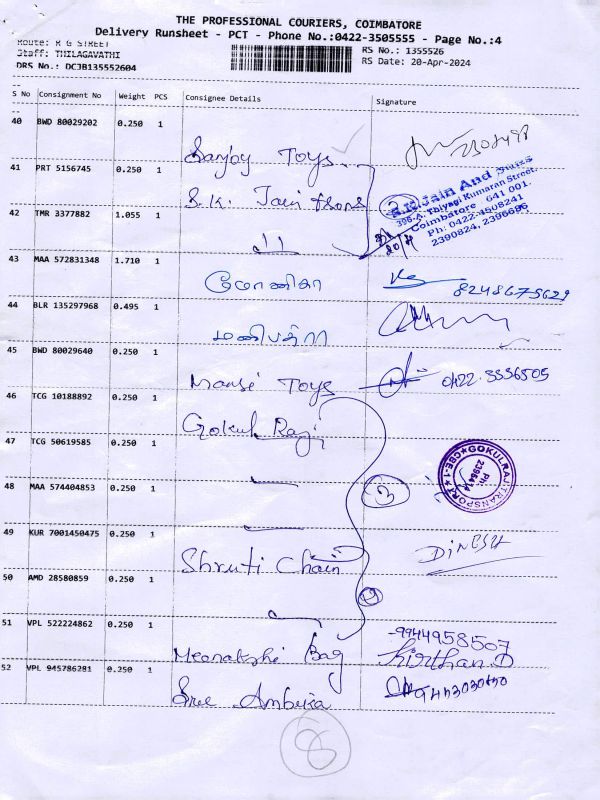 THE PROFESSIONAL COURIERS, COIMBATORE
Delivery Runsheet - PCT - Phone No.:0422-3505555 - Page No.:4
Route: R G STREET
Staff: THILAGAVATHI
DRS No.: DCJB135552604
RS No.: 1355526
RS Date: 20-Apr-2024
S No Consignment No Weight PCS Consignee Details Signature
40 BWD 80029202 0.250 1
Sanjay Toys
41 PRT 5156745 0.250 1
S.K. Jain &
S.K. Jain And Sons
396-A, Thiyagi Kumaran Street,
Coimbatore 641 001.
Ph: 0422-4508241
2390824, 2396696
42 TMR 3377882 1.055 1
43 MAA 572831348 1.710 1
மோனிகா
8248675629
44 BLR 135297968 0.495 1
45 BWD 80029640 0.250 1
Mansi Toys
0422.3336505
46 TCG 10188892 0.250 1
Gokul Raj
47 TCG 50619585 0.250 1
GOKULRAJ TRANSPORT
CBE-1
PH:
2396414
48 MAA 574404853 0.250 1
3
49 KUR 7001450475 0.250 1
Shruti Chain
DINESH
50 AMD 28580859 0.250 1
51 VPL 522224862 0.250 1
Meenakshi Bag
9944958507
Kirthan.D
52 VPL 945786281 0.250 1
Sree Ambika
8